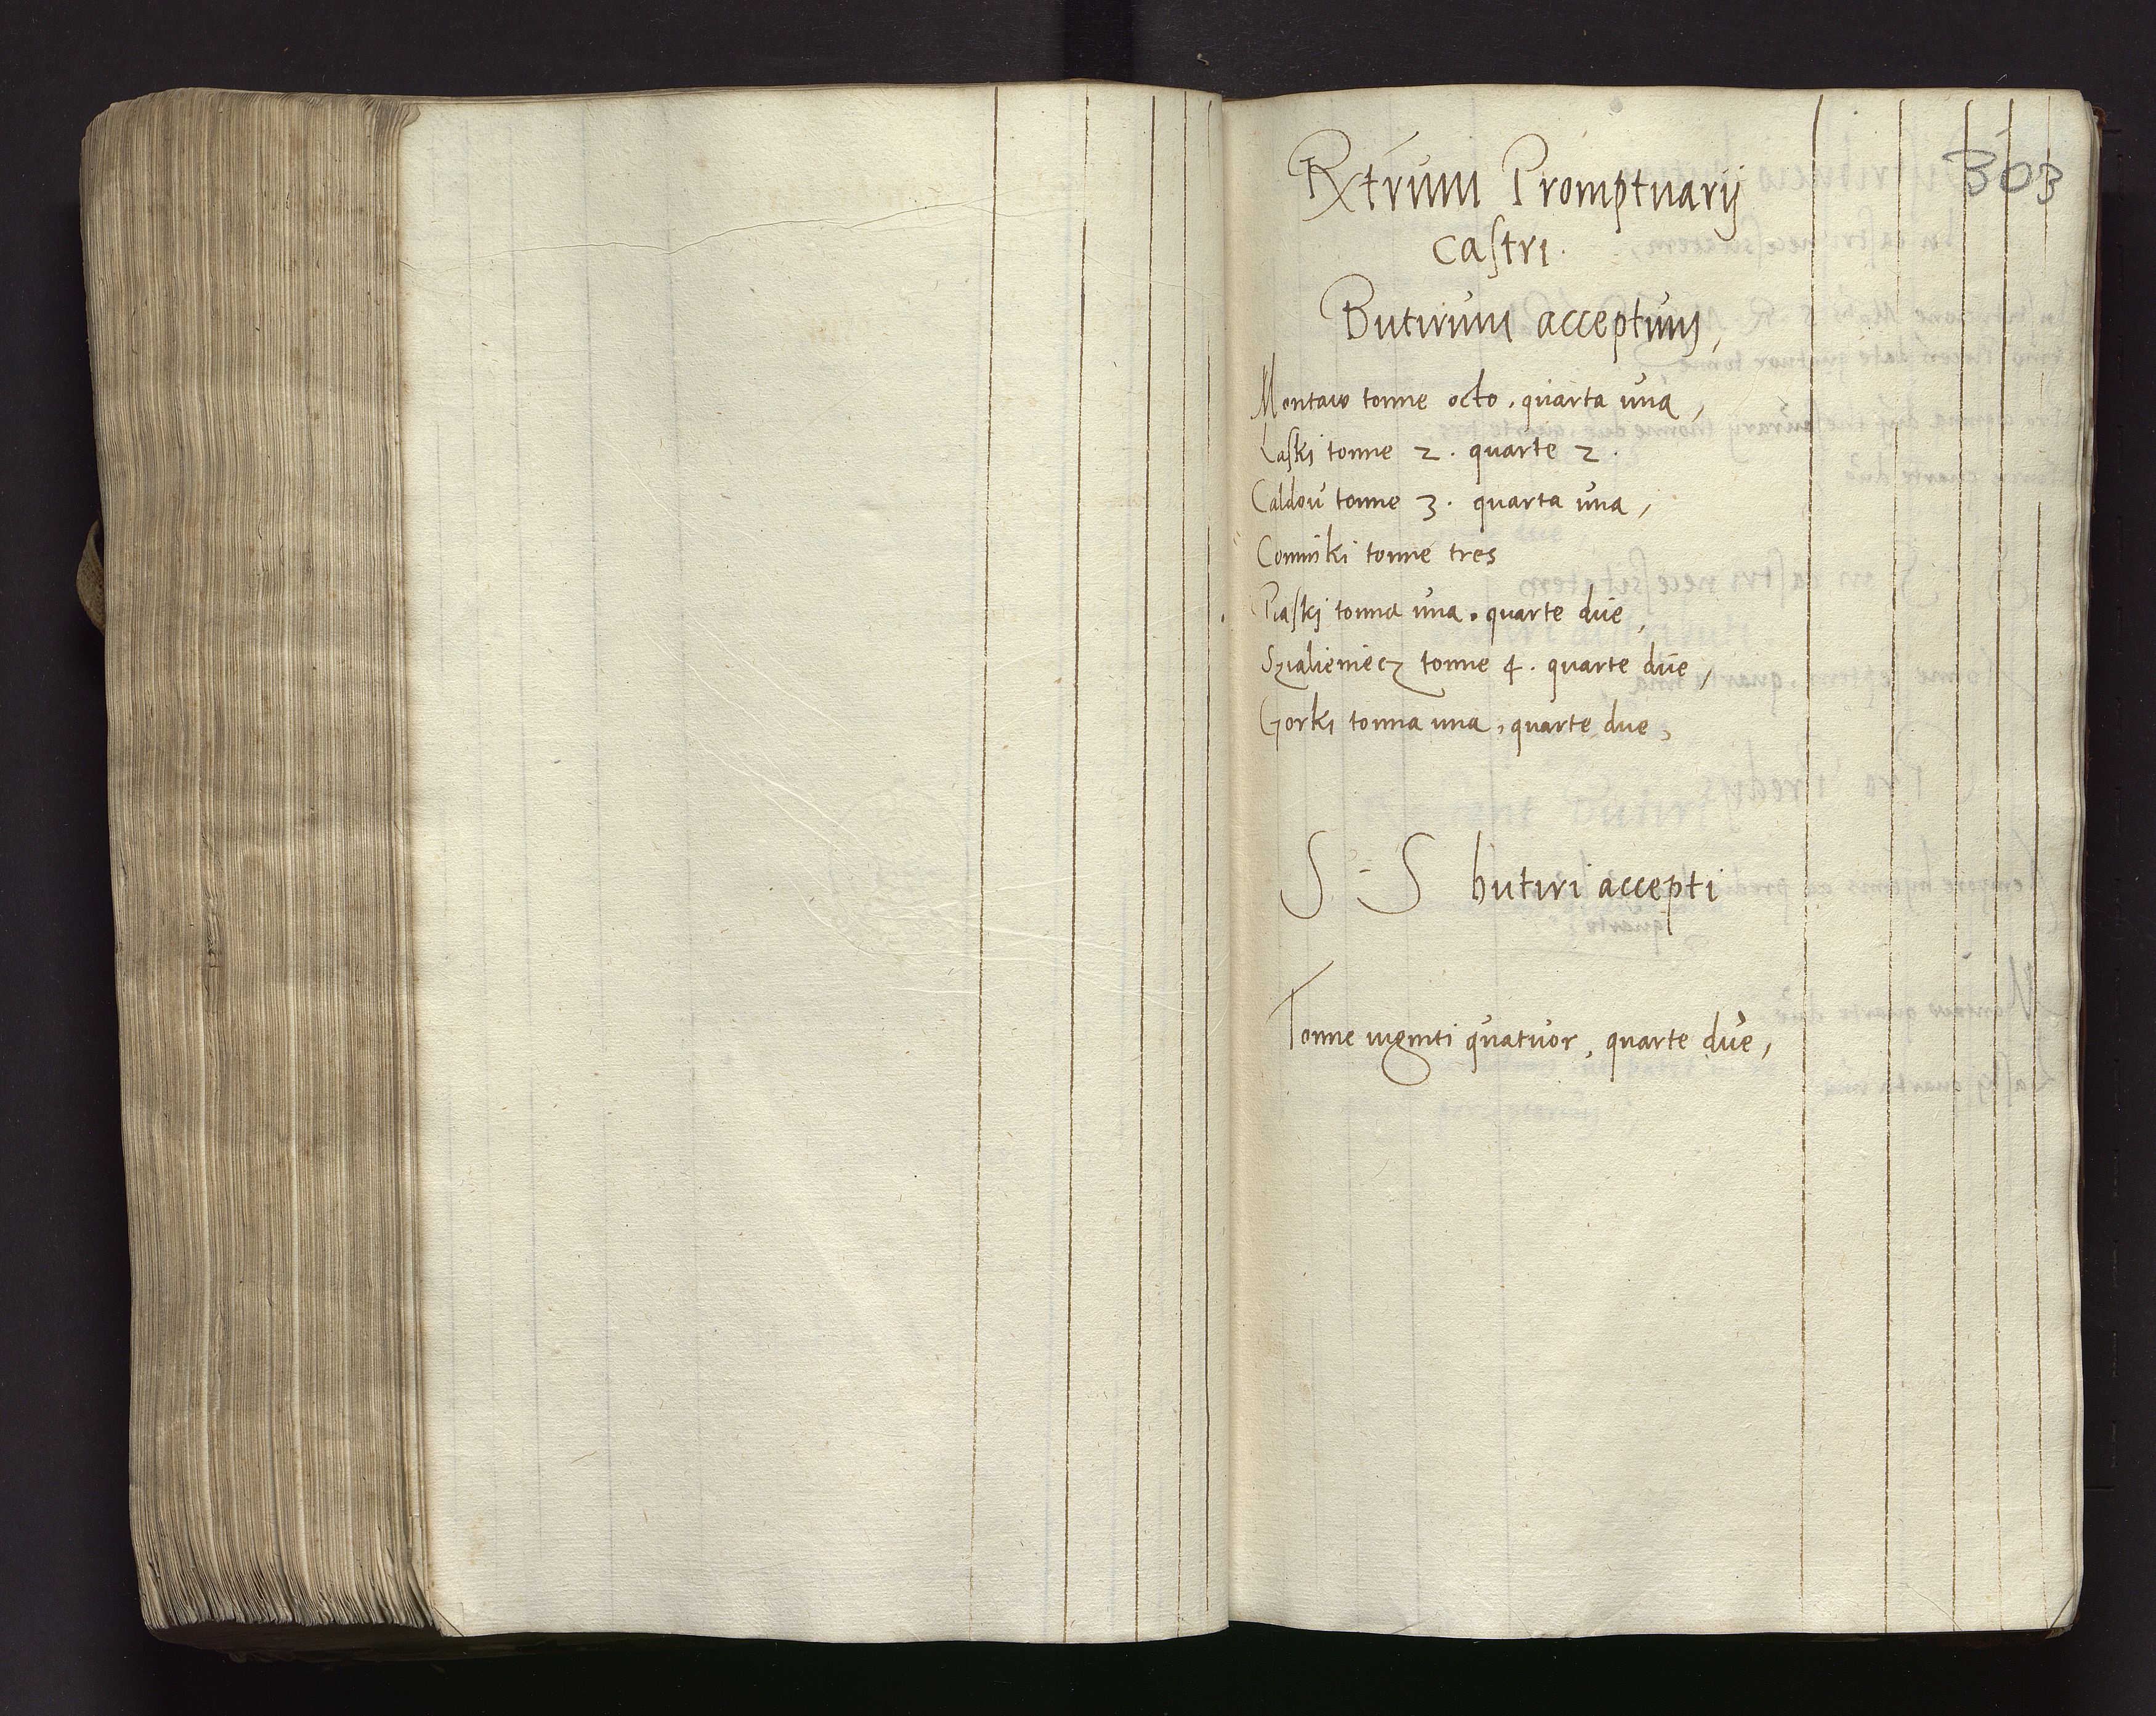 303
Rxtrum Promptuarij
castri.
Butirum acceptum,
Montaw tonne octo, quarta una,
Laski tonne 2. quarte 2.
Caldow tonne 3. quarta una,
Comniki tonne tres
Piaski tonna una. quarte due,
Szialieniecz tonne 4. quarte due,
Gorki tonna una, quarte due,
S = S butiri accepti
Tonne viginti quatuor, quarte due,